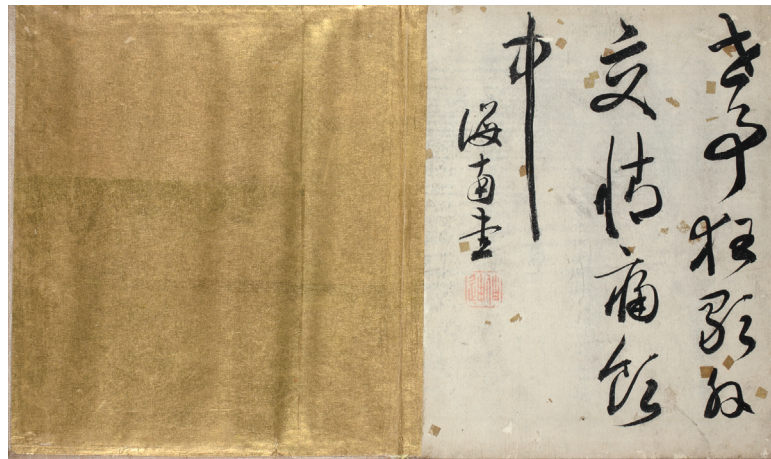 世事狂歌外
交情痛飲
中
海南書